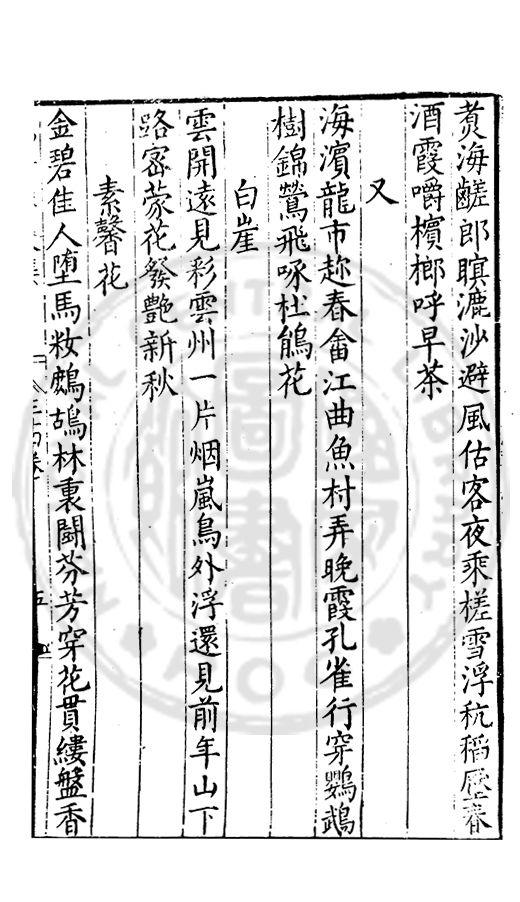 煑海鹺郎瞑漉沙避風估客夜乘槎雪浮秔稻壓春
酒霞嚼檳榔呼早茶
又
海濱龍市趂春畬江曲魚村弄晚霞孔雀行穿鸚鵡
樹錦鶯飛啄杜鵑花
白崖
雲開遠見彩雲州一片烟嵐鳥外浮還見前年山下
路宻蒙花發艷新秋
素馨花
金碧佳人墮馬妝鷓鴣林裏鬭芬芳穿花貫縷盤香